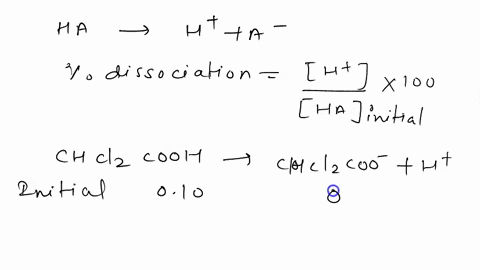 HA → H⁺ + A⁻
% dissociation = [H⁺] / [HA]initial × 100
CHCl₂COOH → CHCl₂COO⁻ + H⁺
Initial 0.10 0